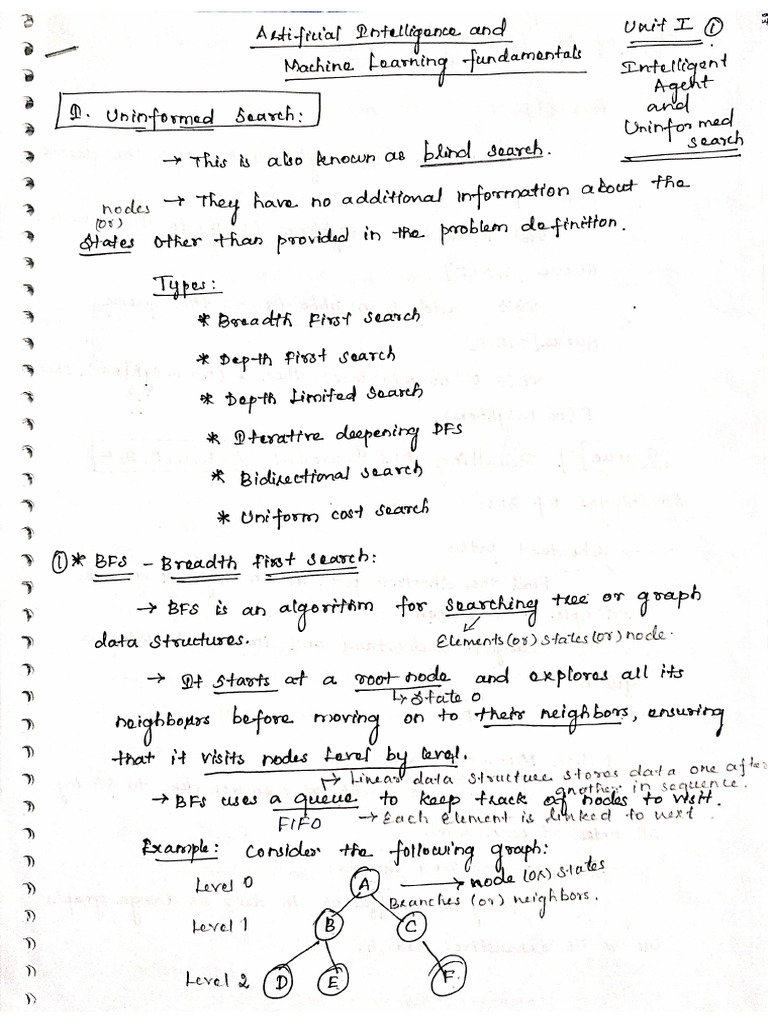 Artificial Intelligence and
Machine Learning fundamentals
Unit I ①
Intelligent
Agent
and
Uninformed
search
I. Uninformed Search:
→ This is also known as blind search.
nodes → They have no additional information about the
(or)
States other than provided in the problem definition.
Types:
* Breadth First search
* Depth First search
* Depth Limited Search
* Iterative deepening DFS
* Bidirectional search
* Uniform cost search
① * BFS - Breadth First search:
→ BFS is an algorithm for searching tree or graph
data structures.
Elements (or) states (or) node.
→ It starts at a root node and explores all its
↳ State 0
neighbours before moving on to their neighbors, ensuring
that it visits nodes Level by level.
→ Linear data structure stores data one after
another in sequence.
→ BFS uses a queue to keep track of nodes to visit.
FIFO → Each element is linked to next.
Example: Consider the following graph:
Level 0 A → node (OR) states
Branches (or) neighbors.
Level 1 B C
Level 2 D E F